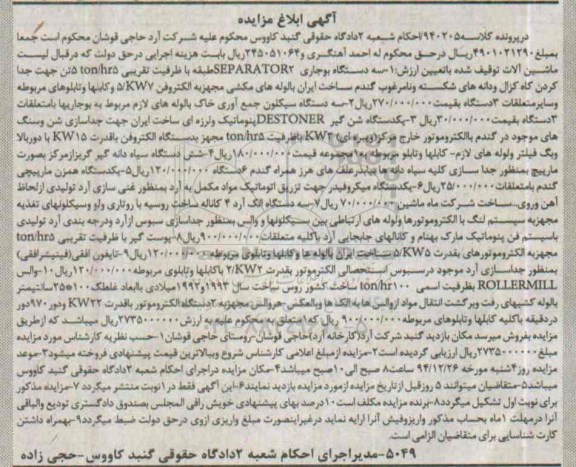 آگهی ابلاغ مزایده
درپرونده کلاسه ۹۴۰۲۰۵/احکام شعبه ۲دادگاه حقوقی گنبد کاووس محکوم علیه شرکت آرد حاجی قوشان محکوم است جمعا
بمبلغ ۴۹۰۱۰۳۱۲۹۰ریال درحق محکوم له احمد آهنگری و۲۴۵۰۵۱۰۶۴ریال بابت هزینه اجرایی درحق دولت که درقبال لیست
ماشین آلات توقیف شده باتعیین ارزش:۱-سه دستگاه بوجاری SEPARATOR۲طبقه با ظرفیت تقریبی ton/hr۵تن جهت جدا
کردن کاه کزال ودانه های شکسته ونامرغوب گندم ساخت ایران بالوله های مکشی مجهزبه الکتروفن ۵/۷KW وکابلها وتابلوهای مربوطه
وسایرمتعلقات ۳دستگاه بقیمت۲۷۰/۰۰۰/۰۰۰ریال۲-سه دستگاه سیکلون جمع آوری خاک بالوله های لازم مربوط به بوجاریها بامتعلقات
۳دستگاه بقیمت۳۰/۰۰۰/۰۰۰ریال ۳-یکدستگاه شن گیر DESTONERپنوماتیک ولرزه ای ساخت ایران جهت جداسازی شن وسنگ
های موجود در گندم باالکتروموتور خارج مرکز(لرزه ای) ۳KW باظرفیت ton/hr۵ مجهز بدستگاه الکتروفن باقدرت ۱۵ KW با دوربالا
وبگ فیلتر ولوله های لازم- کابلها وتابلو مربوطه مجموعه قیمت ۱۸۰/۰۰۰/۰۰۰ریال۴-شش دستگاه سیاه دانه گیر گریزازمرکز بصورت
مارپیچ بمنظور جدا سازی کلیه سیاه دانه ها وبذرعلف های هرز همراه گندم ۶دستگاه ۱۲۰/۰۰۰/۰۰۰ ریال۵-یکدستگاه همزن مارپیچی
گندم بامتعلقات۲۵/۰۰۰/۰۰۰ریال۶-یکدستگاه میکروفیدر جهت تزریق اتوماتیک مواد مکمل به آرد بمنظور غنی سازی آرد تولیدی ازلحاظ
آهن وروی، ساخت شرکت ماه ماشین ۷۰/۰۰۰/۰۰۰ ریال۷-سه دستگاه الک آرد ۴ کاناله ساخت روسیه با روتاری ولو وسیکلونهای تغذیه
مجهزبه سیستم لنگ با الکتروموتورها ولوله های ارتباطی بین سیکلونها و والس بمنظور جداسازی سبوس ازآرد ودرجه بندی آرد تولیدی
باسیستم فن پنوماتیک مارک بهنام و کانالهای جابجایی آرد باکلیه متعلقات۹۰۰/۰۰۰/۰۰۰ریال۸-پوست گیر با ظرفیت تقریبی ton/hr۵
مجهزبه الکتروموتورهای بقدرت ۵/۵KW ساخت ایران بالوله ها وکابلها وتابلوی مربوطه ریال۹-تایفون افقی(فینیترافقی)
بمنظور جداسازی آرد موجود درسبوس استحصالی الکتروموتور بقدرت ۲/۲KW باکابلها وتابلوی مربوطه۱۲۰/۰۰۰/۰۰۰ریال۱۰-والس
ROLLERMILL بظرفیت اسمی ton/hr۱۰۰ ساخت کشور روس ساخت سال ۱۹۹۳و۱۹۹۲میلادی باابعاد غلطک ۱۰۰*۲۵سانتیمتر
بالوله کشیهای رفت وبرگشت انتقال مواد ازوالس ها به الک ها وبالعکس-هروالس مجهزبه ۲دستگاه الکتروموتور باقدرت ۲۲KW ودور ۹۷۰دور
دردقیقه باکلیه کابلها وتابلوهای مربوطه۹۰۰/۰۰۰/۰۰۰ ریال که متعلق به محکوم علیه به ارزش ۲۷۳۵۰۰۰۰۰۰ریال میباشد که ازطریق
مزایده بفروش میرسد مکان بازدید گنبد شرکت آرد(کارخانه آرد)حاجی قوشان-روستای حاجی قوشان۱-حسب نظریه کارشناس مورد مزایده
مبلغ۲۷۳۵۰۰۰۰۰۰ریال ارزیابی گردیده است۲-مزایده ازمبلغ اعلامی کارشناس شروع وببالاترین قیمت پیشنهادی فروخته میشود۳-موعد
مزایده روز ۴شنبه مورخه ۹۴/۱۲/۲۶ ساعت۸ صبح الی ۱۰صبح میباشد۴-مکان مزایده دراجرای احکام شعبه ۲دادگاه حقوقی گنبد کاووس
میباشد۵-متقاضیان میتوانند ۵ روزقبل ازتاریخ مزایده ازمورد مزایده بازدید نمایند۶-این آگهی فقط در۱نوبت منتشر میگردد ۷-مزایده مذکور
برای نوبت اول تشکیل میگردد۸-برنده مزایده مکلف است۱۰درصد بهای پیشنهادی خویش راقی المجلس بصندوق دادگستری تودیع والباقی
آنرا درمهلت ۱ماه بحساب مذکور واریزوفیش آنرا ارایه نماید درغیراینصورت مبلغ واریزی ازوی درحق دولت ضبط میگردد۹-بهمراه داشتن
کارت شناسایی برای متقاضیان الزامی است.
۵۰۴۹-مدیراجرای احکام شعبه ۲دادگاه حقوقی گنبد کاووس-حجی زاده